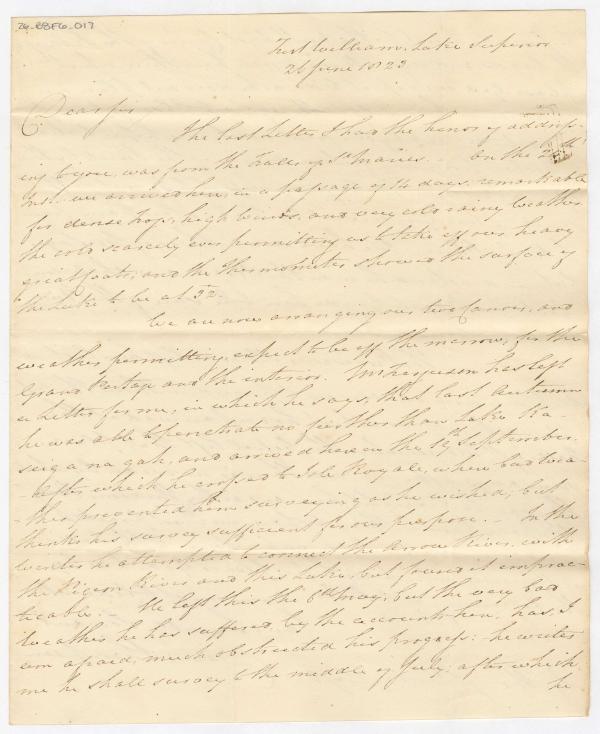 26-BBFG-017
Fort William, Lake Superior
26 June 1823
Dear sir
The last Letter I had the honor of address-
ing to you, was from the Falls of St. Maries. On the
Inst. we arrived here, in a passage of 14 days, remarkable
for dense Fogs, high Winds, and very cold rainy Weather
the cold scarcely ever permitting us to take off our heavy
great Coats, and the Thermometer showed the surface of
the Lake to be at 52.
We are now arranging our two Canoes, and
weather permitting expect to be off the morrow, for the
Grand Portage and the interior. Mr Ferguson has left
a Letter for me, in which he says, that last Autumn
he was able to penetrate no further than Lake Ka-
seig a na gah, and arrived here on the 12th September.
After which he crossed to Isle Royale, where bad Wea-
-ther prevented him surveying as he wished; but
thinks his survey sufficient for our purpose. - In the
Winter he attempted to connect the Arrow River with
the Pigeon River and this Lake, but found it imprac-
ticable. - He left this the 6th May; but the very bad
Weather he has suffered, by the accounts here, has, I
am afraid, much obstructed his progress: he writes
me he shall survey to the middle of July: after which
he